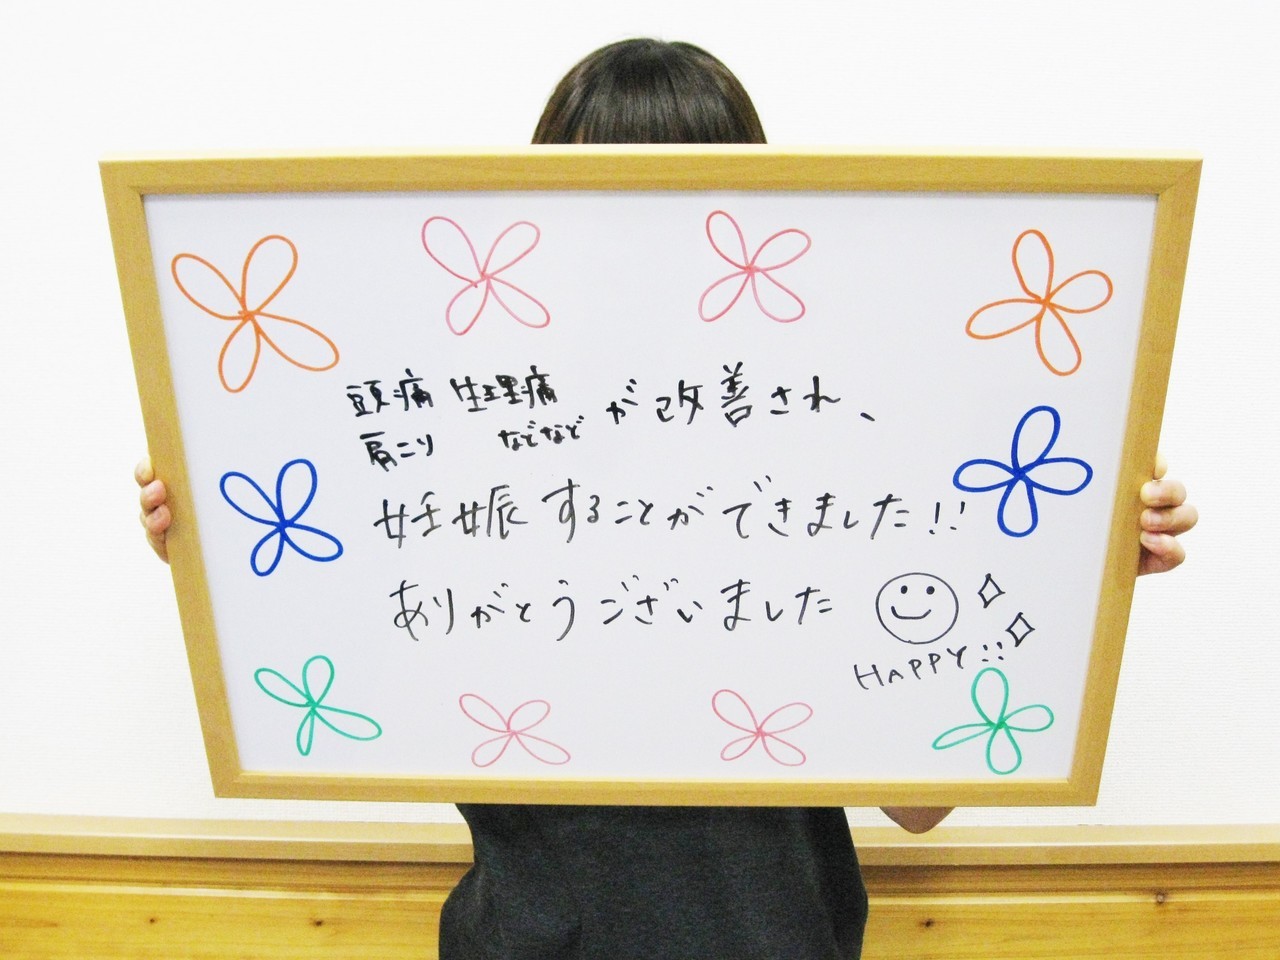 頭痛 生理痛
肩こり などなど が改善され、
妊娠することができました!!
ありがとうございました
HAPPY!!